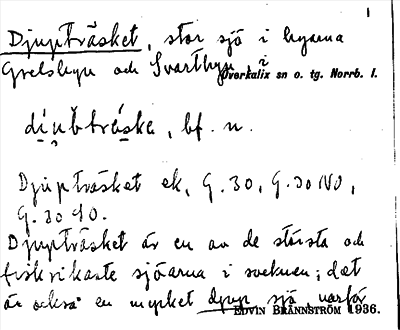 1
Djupträsket, stor sjö i byarna
Grelsbyn och Svartbyn, i
Överkalix sn o. tg. Norrb. l.
bf. n.
Djupträsket ek. G. 30, G. 30 NO,
G. 30 SO.
Djupträsket är en av de största och
fiskrikaste sjöarna i socknen; det
är också en mycket djup sjö varför
EDVIN BRÄNNSTRÖM 1936.